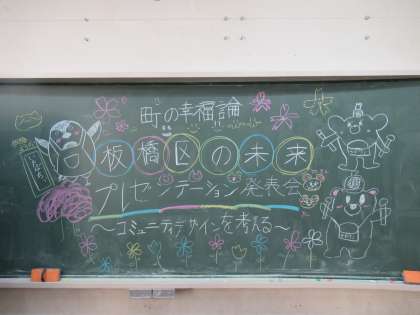 町の幸福論
板橋区の未来
プレゼンテーション発表会
～コミュニティデザインを考える～